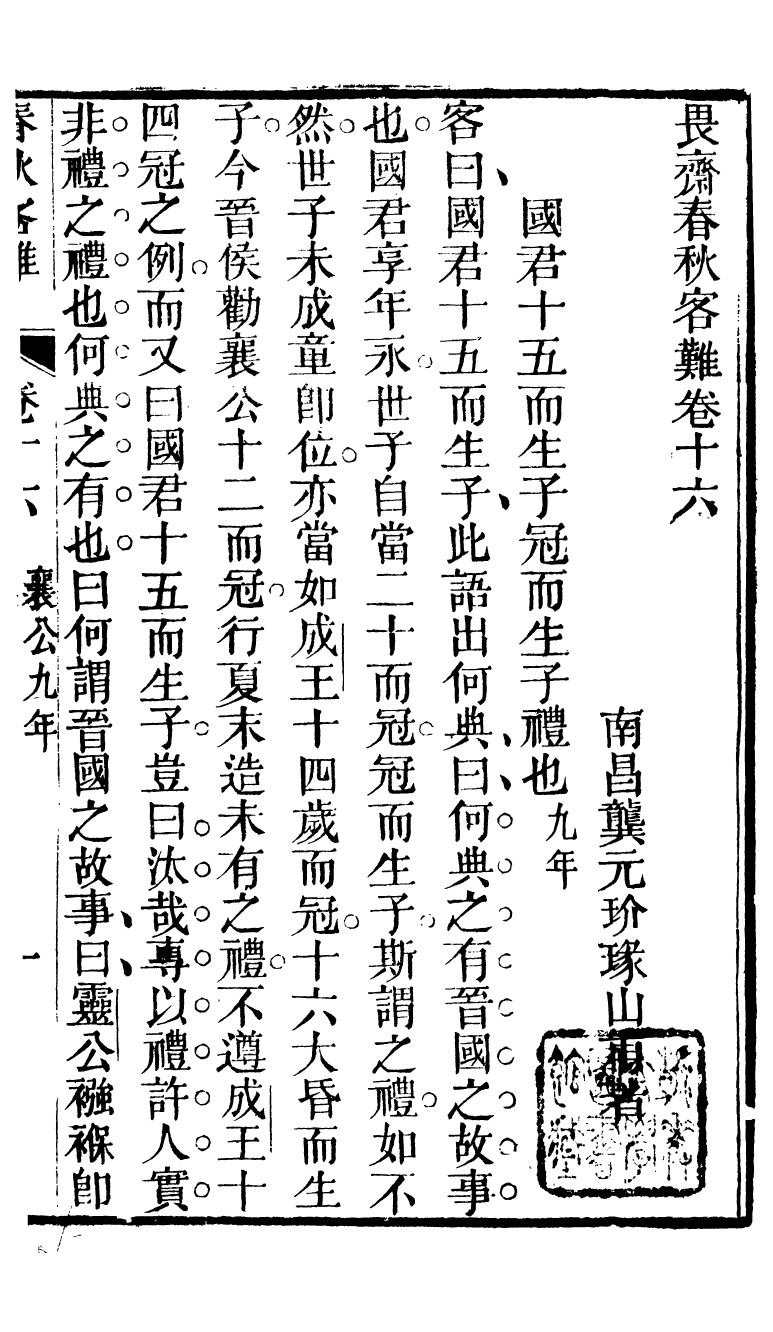 畏齋春秋客難卷十六
南昌龔元玠瑑山甫著
國君十五而生子冠而生子禮也九年
客曰國君十五而生子此語出何典曰何典之有晉國之故事
也國君享年永世子自當二十而冠冠而生子斯謂之禮如不
然世子未成童卽位亦當如成王十四歲而冠十六大昏而生
子今晉侯勸襄公十二而冠行夏末造未有之禮不遵成王十
四冠之例而又曰國君十五而生子豈曰汰哉專以禮許人實
非禮之禮也何典之有也曰何謂晉國之故事曰靈公襁褓卽
春秋客難 卷十六 襄公九年 一